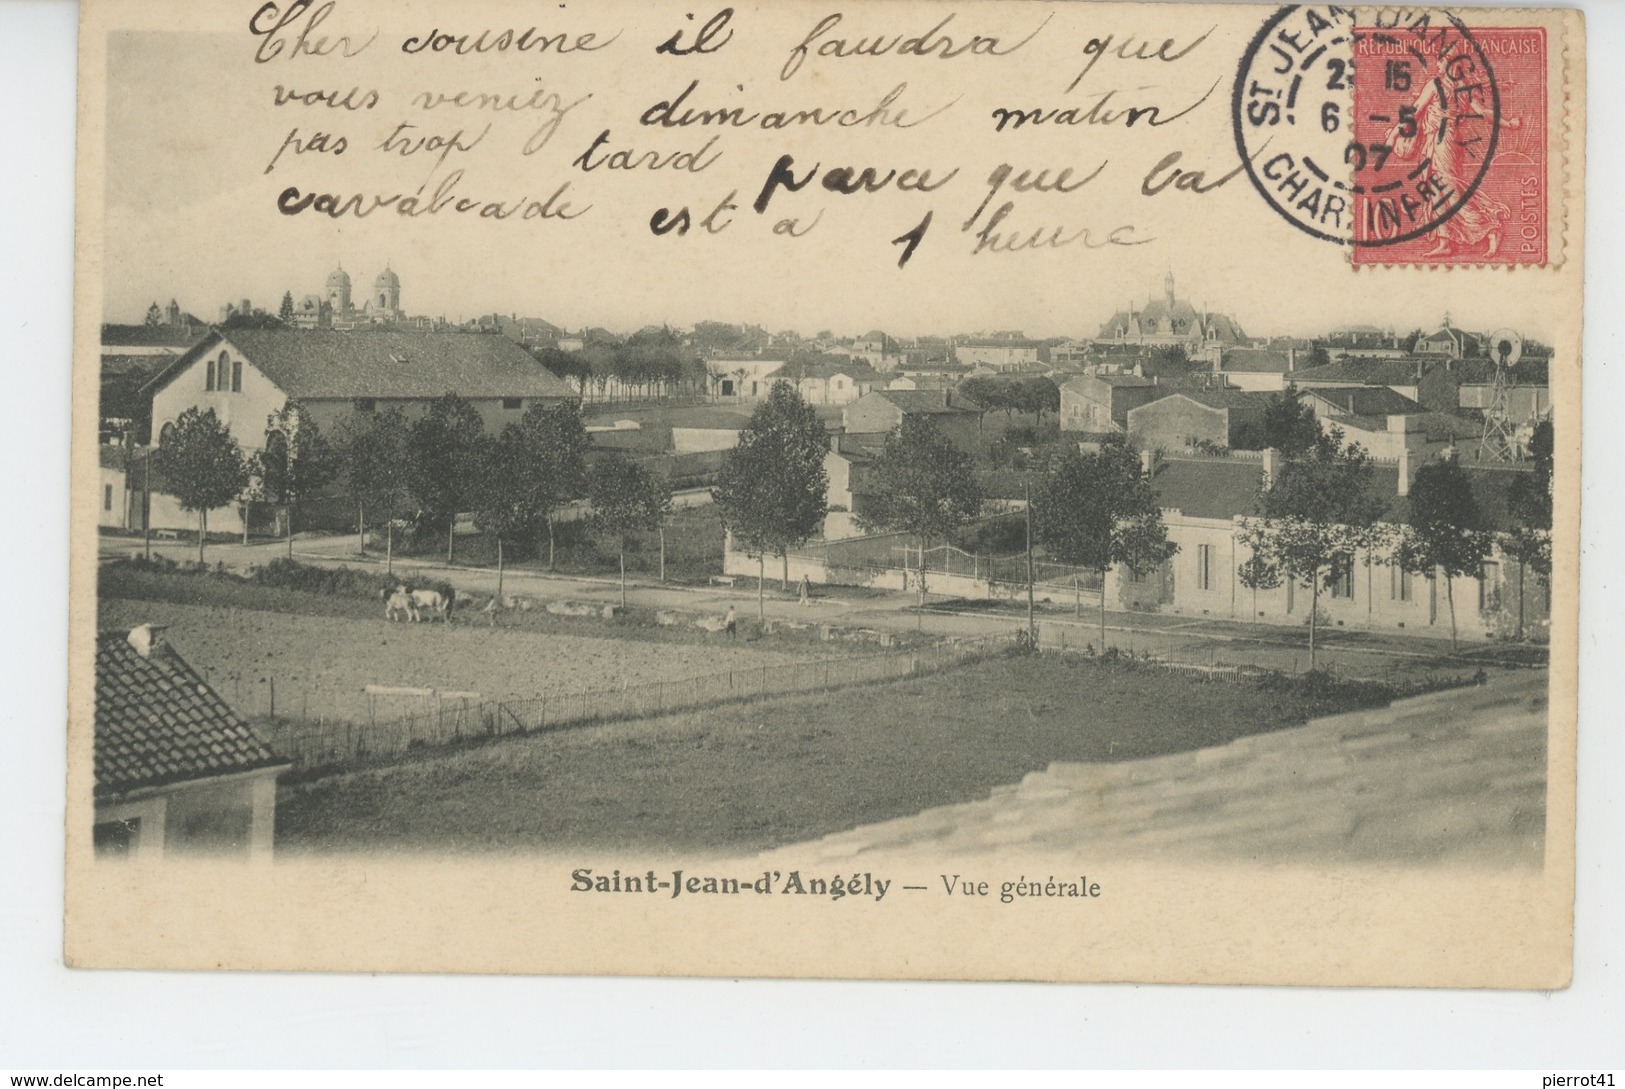 Cher cousine il faudra que
vous veniez dimanche matin
pas trop tard parce que la
cavalcade est a 1 heure
ST JEAN D'ANGELY
2 15
6 -5
07
CHAR. INFRE
REPUBLIQUE FRANÇAISE
10
POSTES
Saint-Jean-d'Angély — Vue générale
pierrot41